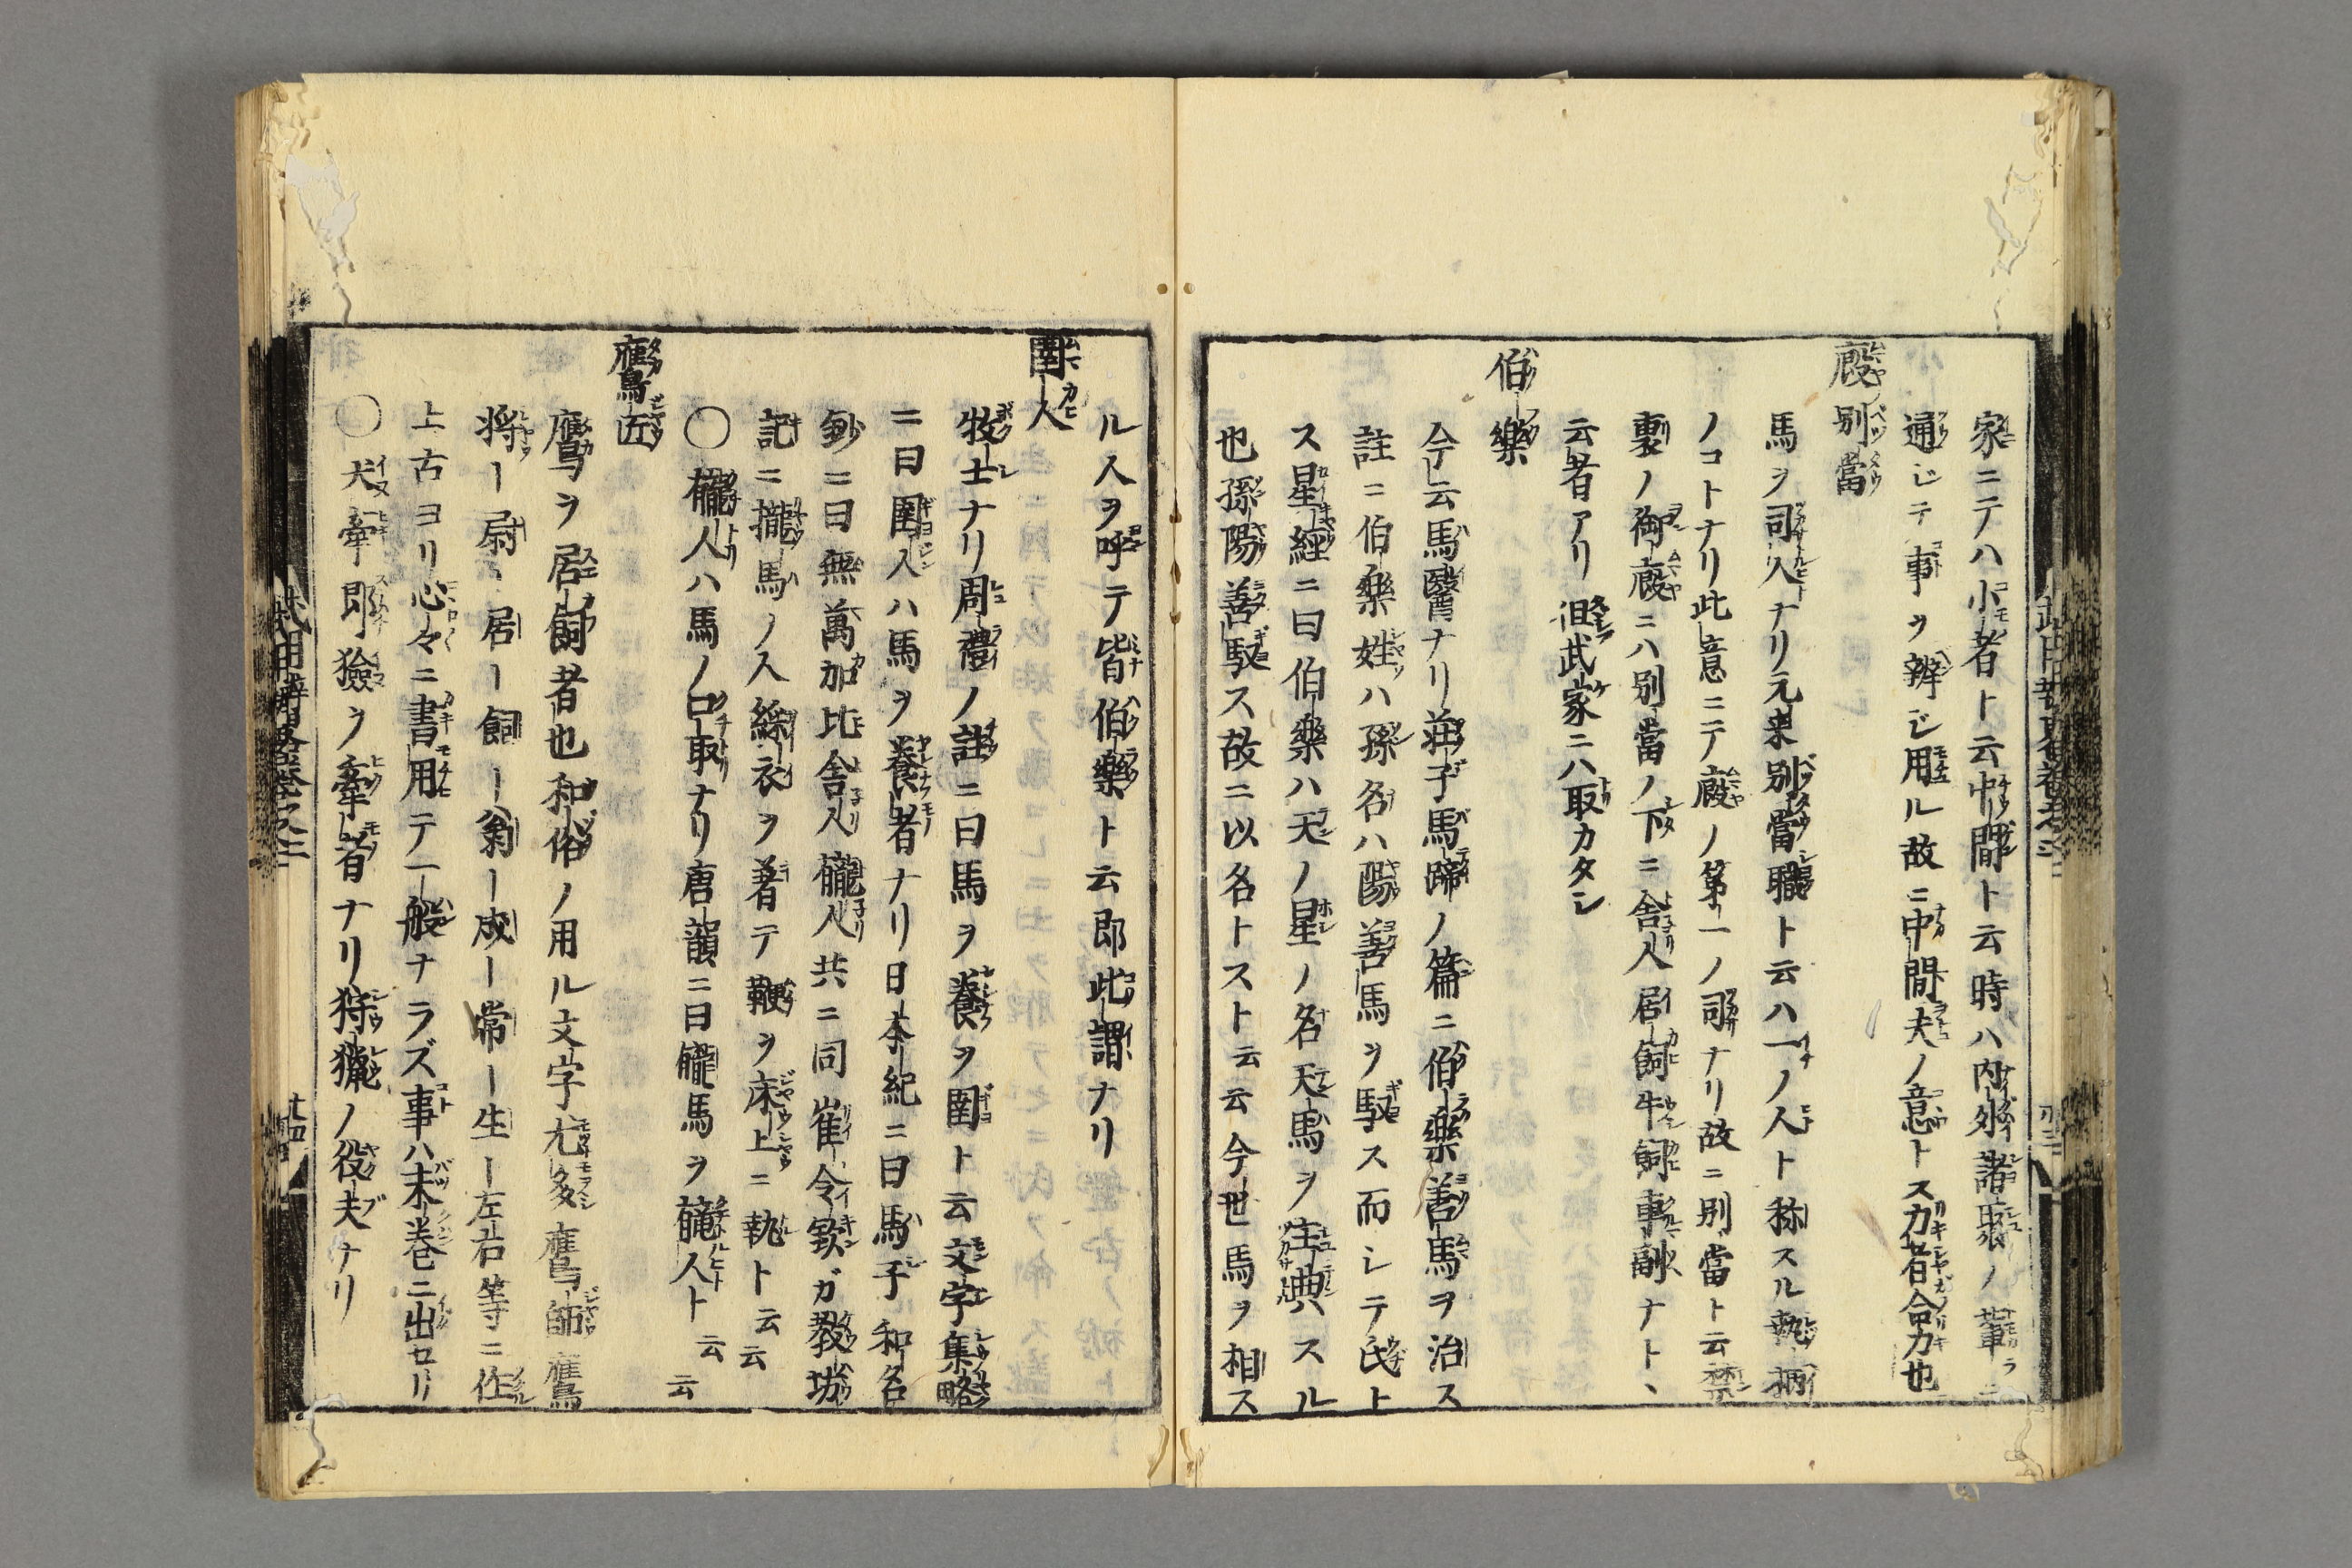 家ニテハ小者ト云中間ト云時ハ内外諸衆ノ輩ラニ
通ジテ事ヲ辨ジ用ル故ニ中間夫ノ意トス力者命力也
廐別當
馬ヲ司人ナリ元来別當職ト云ハ一ノ人ト称スル執柄
ノコトナリ此意ニテ廐ノ第一ノ司ナリ故ニ別當ト云禁
裏ノ御廐ニハ別當ノ下ニ舎人居飼牛飼車副ナト丶
云者アリ但武家ニハ取カタシ
伯樂
今云馬醫ナリ莊子馬蹄ノ篇ニ伯樂善馬ヲ治ス
註ニ伯樂姓ハ孫名ハ陽善馬ヲ馭ス而シテ氏ト
ス星經ニ曰伯樂ハ天ノ星ノ名天馬ヲ主典スル
也孫陽善馭ス故ニ以名トスト云云今世馬ヲ相ス
ル人ヲ呼テ皆伯樂ト云即此謂ナリ
圉人
牧士ナリ周禮ノ註ニ曰馬ヲ養ヲ圉ト云文字集略
ニ曰圉人ハ馬ヲ養者ナリ日本紀ニ曰馬子和名
鈔ニ曰無萬加比舎人龓人共ニ同崔令欽ガ教坊
記ニ攏馬ノ人絲衣ヲ著テ鞭ヲ床上ニ執ト云云
〇龓人ハ馬ノ口取ナリ唐韻ニ曰龓馬ヲ龓人ト云云
鷹匠
鷹ヲ居飼者也和俗ノ用ル文字尤多鷹師鷹
将ー尉丶居ー飼ー翁ー成ー常ー生ー左右等ニ作
上古ヨリ心々ニ書用テ一般ナラズ事ハ末巻ニ出セリ
〇犬牽即獫ヲ牽者ナリ狩獵ノ役夫ナリ
武用辨畧巻之二
廿四